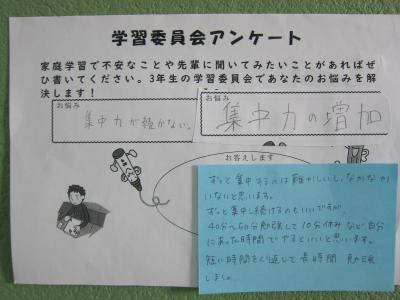 学習委員会アンケート
家庭学習で不安なことや先輩に聞いてみたいことがあればぜ
ひ書いてください。3年生の学習委員会であなたのお悩みを解
決します!
お悩み
集中力が続かない。
お悩み
集中力の増加
お答えします
ずっと集中するのは難かしいし、なかなか
いないと思います。
ずっと集中し続けるのもいいですが、
40分〜50分勉強して10分休みなど、自分
にあった時間でやるといいと思います。
短い時間をくり返して長時間 勉強
しましょ